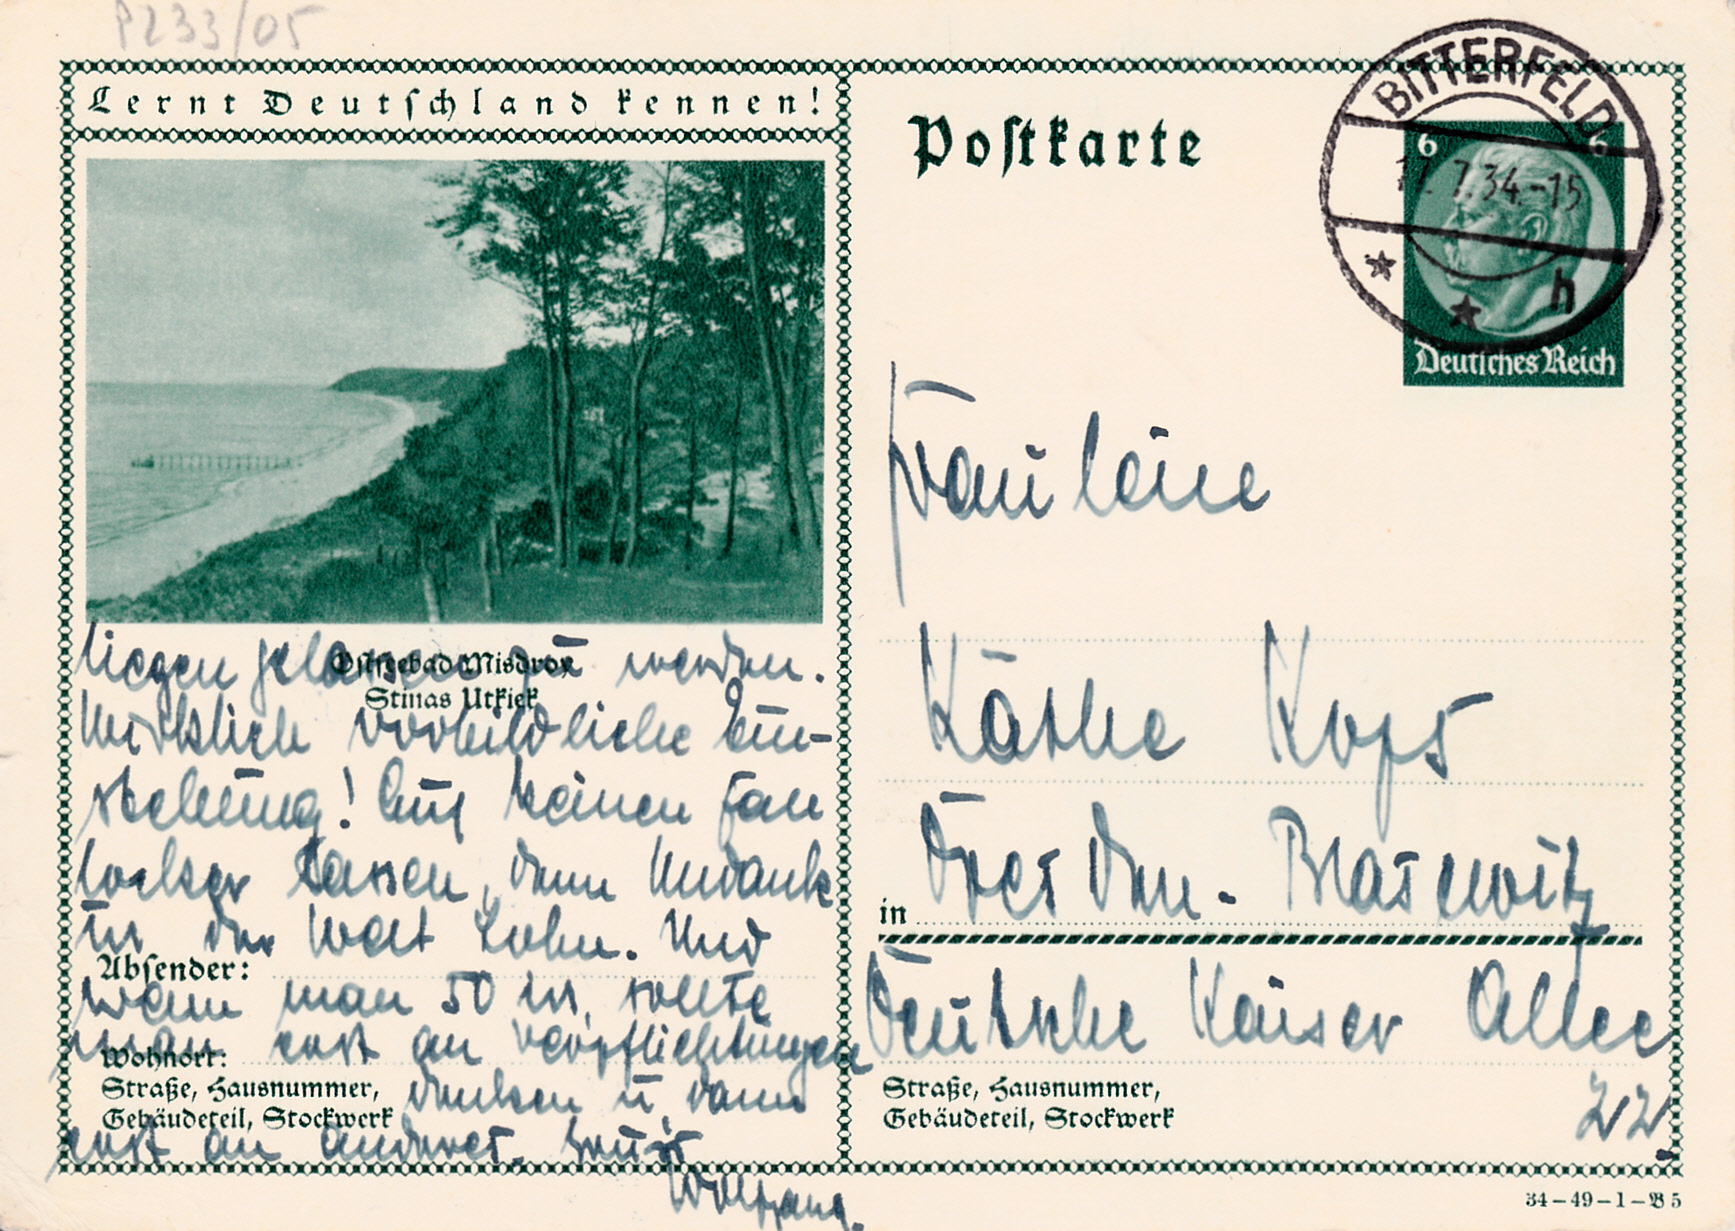 P233/05
Lernt Deutschland kennen!
Postkarte
BITTERFELD
17. 7. 34.-15
h
6 6
Deutsches Reich
Ostseebad Misdroy
Stinas Utkiek
liegen gelassen zu werden.
Wirklich vorbildliche Ein-
stellung! Auf keinen Fall
locker lassen, denn Undank
ist der Welt Lohn. Und
wenn man 50 ist, sollte
man erst an Verpflichtungen
denken u. dann
erst an anderes. Gruß
Wolfgang.
Absender:
Wohnort:
Straße, Hausnummer,
Gebäudeteil, Stockwerk
Fräulein
Käthe Kops
in Dresden-Blasewitz
Deutsche Kaiser Allee
Straße, Hausnummer,
Gebäudeteil, Stockwerk
22.
34-49-1-B5